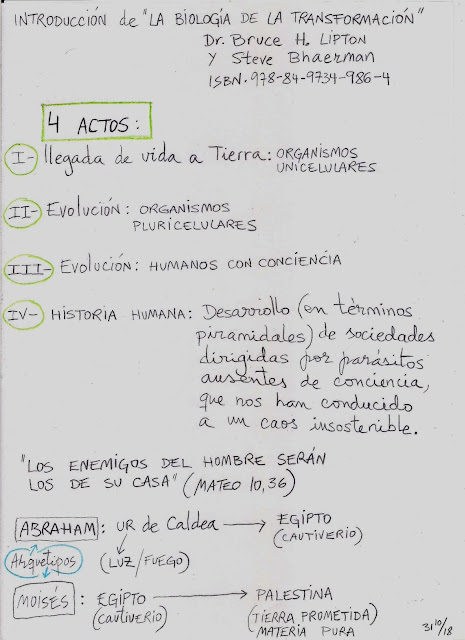 INTRODUCCIÓN de "LA BIOLOGÍA DE LA TRANSFORMACIÓN"
Dr. Bruce H. LIPTON
Y Steve Bhaerman
ISBN. 978-84-9734-986-4
4 ACTOS:
I- llegada de vida a Tierra: ORGANISMOS
UNICELULARES
II- Evolución: ORGANISMOS
PLURICELULARES
III- Evolución: HUMANOS CON CONCIENCIA
IV- HISTORIA HUMANA: Desarrollo (en términos
piramidales) de sociedades
dirigidas por parásitos
ausentes de conciencia,
que nos han conducido
a un caos insostenible.
"LOS ENEMIGOS DEL HOMBRE SERÁN
LOS DE SU CASA" (MATEO 10,36)
ABRAHAM: UR de Caldea → EGIPTO
(CAUTIVERIO)
Arquetipos (LUZ/FUEGO)
MOISÉS: EGIPTO → PALESTINA
(CAUTIVERIO) (TIERRA PROMETIDA)
MATERIA PURA
31 10/18